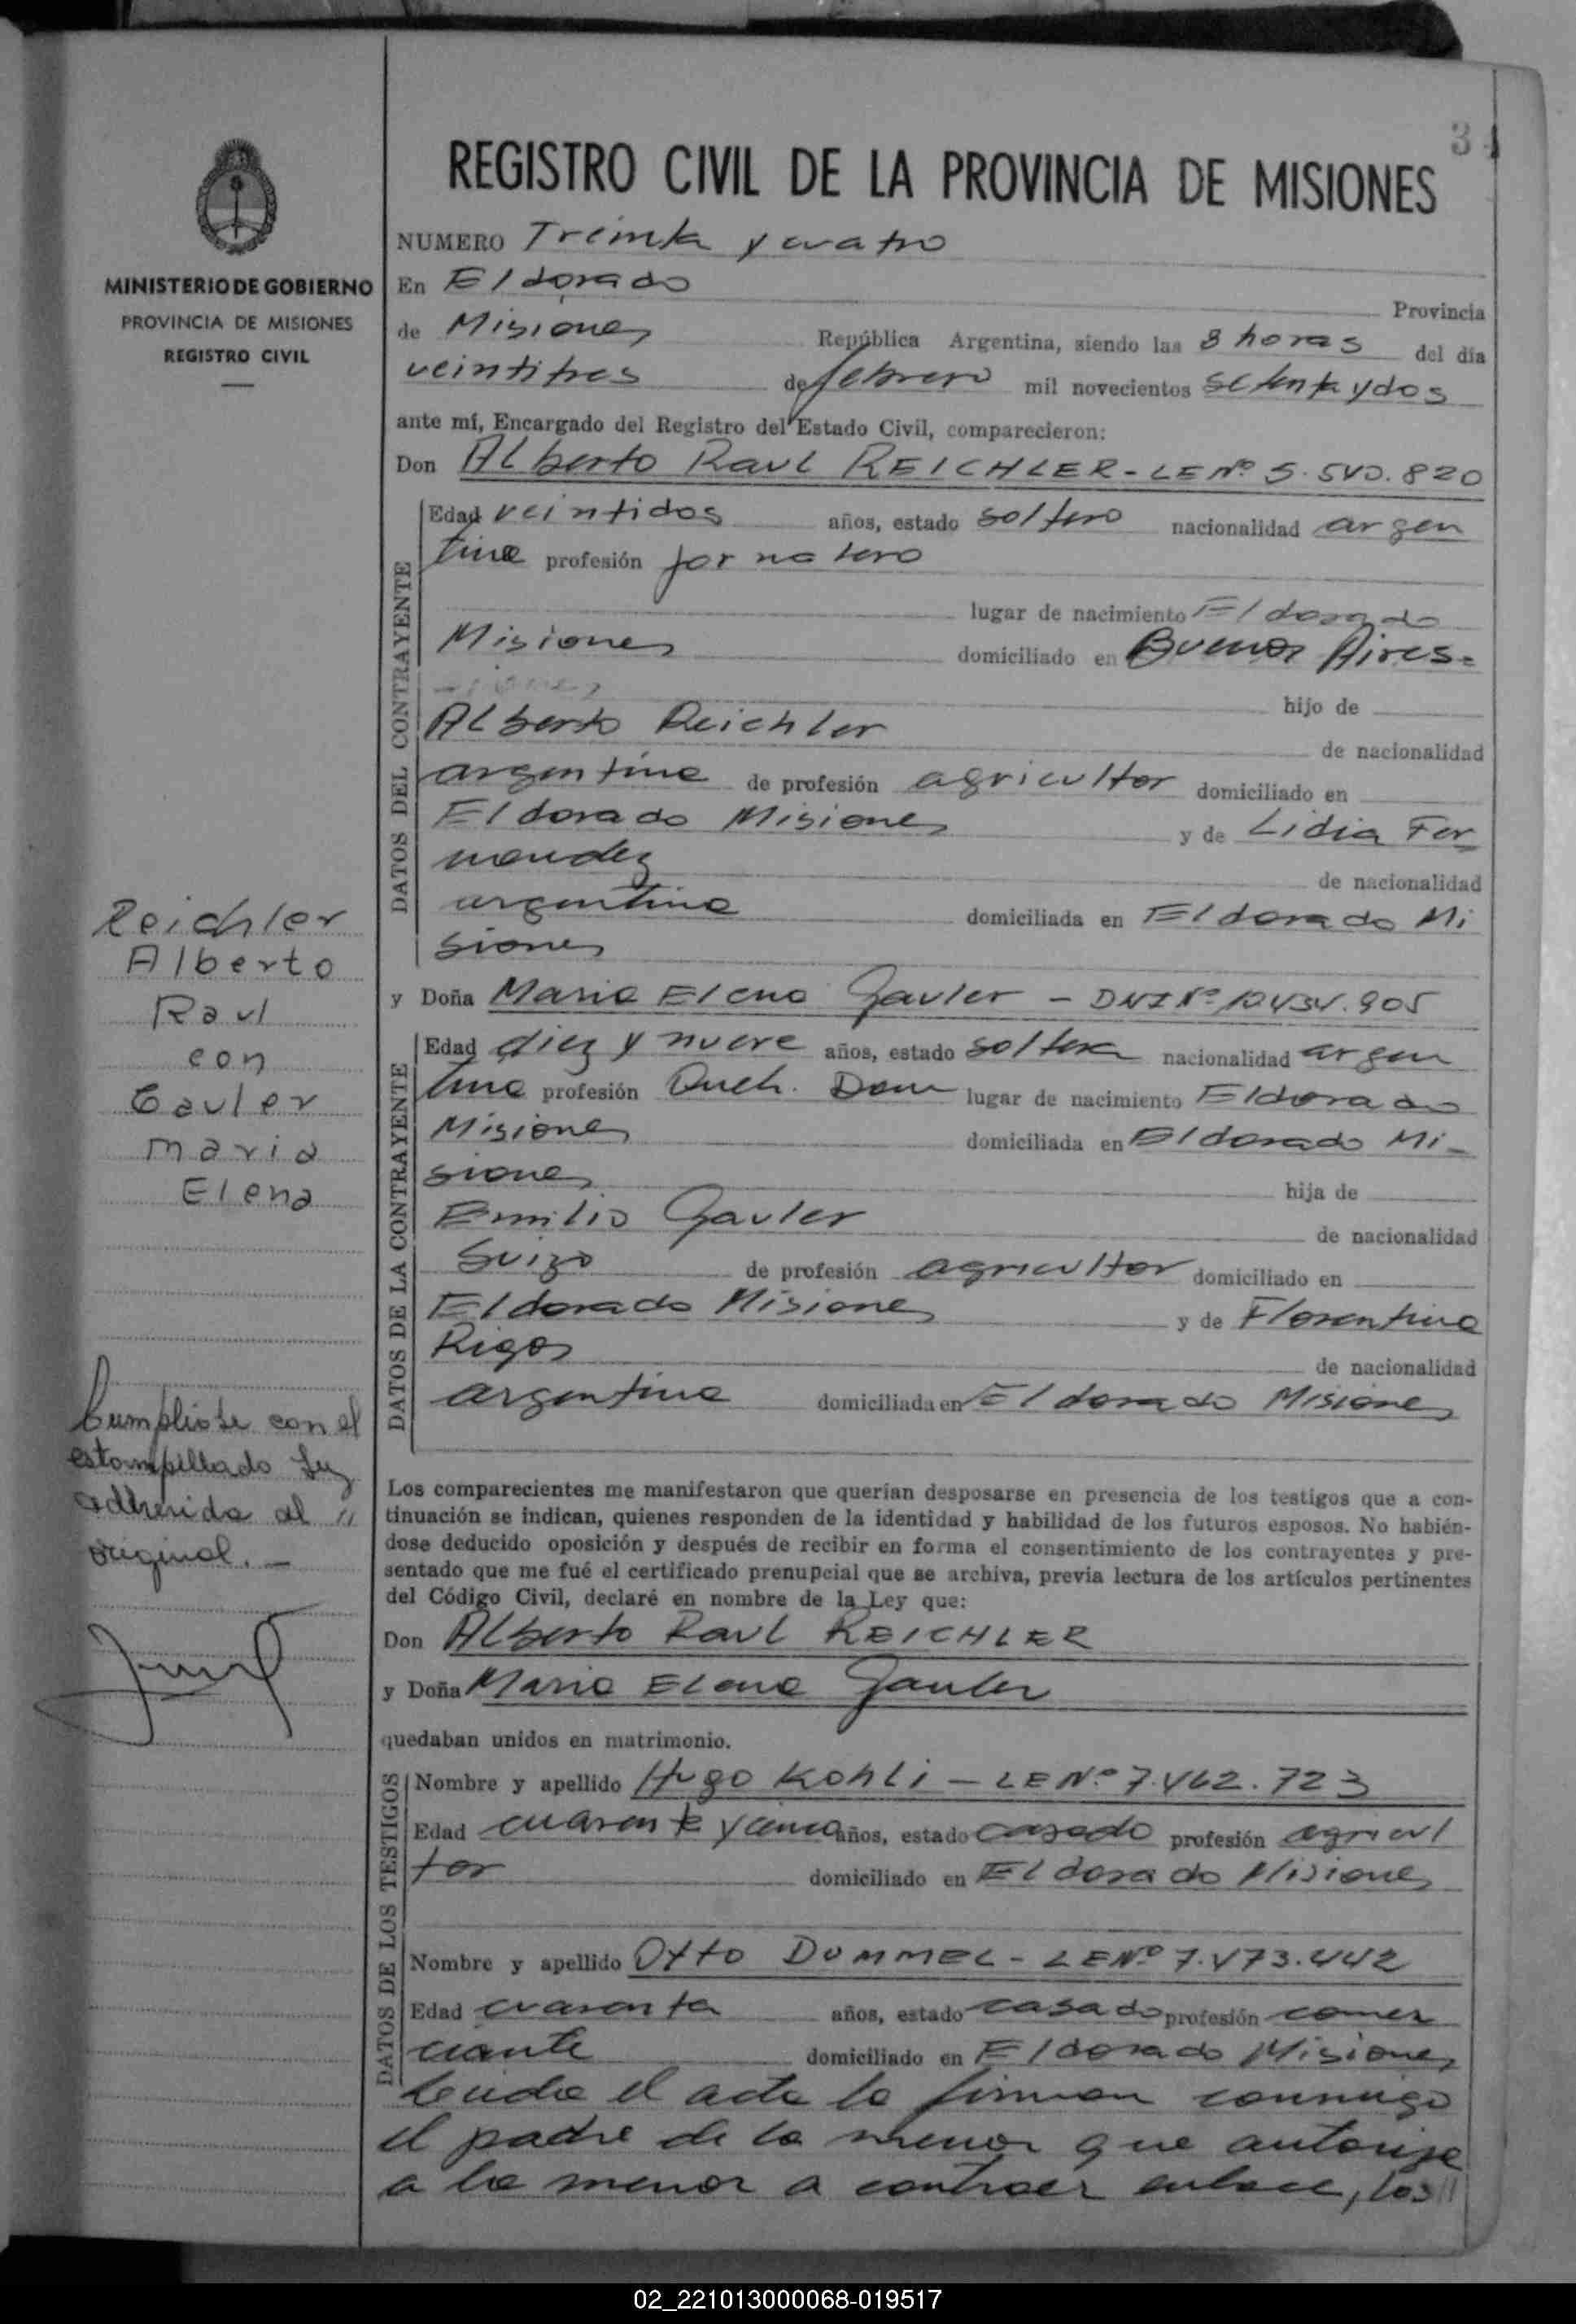 34
REGISTRO CIVIL DE LA PROVINCIA DE MISIONES
MINISTERIO DE GOBIERNO
PROVINCIA DE MISIONES
REGISTRO CIVIL
NUMERO Treinta y cuatro
En Eldorado
Provincia
de Misiones República Argentina, siendo las 8 horas del día
veintitres de febrero mil novecientos setenta y dos
ante mí, Encargado del Registro del Estado Civil, comparecieron:
Don Alberto Raul REICHLER - LE Nº 5.540.820
DATOS DEL CONTRAYENTE
Edad veintidos años, estado soltero nacionalidad argen
tina profesión jornalero
lugar de nacimiento Eldorado
Misiones domiciliado en Buenos Aires.=
hijo de
Alberto Reichler
de nacionalidad
argentina de profesión agricultor domiciliado en
Eldorado Misiones y de Lidia Fer
nandez
de nacionalidad
argentina domiciliada en Eldorado Mi
siones
y Doña Maria Elena Gauler - DNI Nº
DATOS DE LA CONTRAYENTE
Edad diez y nueve años, estado soltera nacionalidad argen
tina profesión Queh. Dom lugar de nacimiento Eldorado
Misiones domiciliada en Eldorado Mi-
siones
hija de
Emilio Gauler
de nacionalidad
Suizo de profesión agricultor domiciliado en
Eldorado Misiones y de Florentina
Rigos
de nacionalidad
argentina domiciliada en Eldorado Misiones
Reichler
Alberto
Raul
con
Gauler
Maria
Elena
Cumpliose con el
estampillado Ley
adherida al //
original. -
Los comparecientes me manifestaron que querían desposarse en presencia de los testigos que a con-
tinuación se indican, quienes responden de la identidad y habilidad de los futuros esposos. No habién-
dose deducido oposición y después de recibir en forma el consentimiento de los contrayentes y pre-
sentado que me fué el certificado prenupcial que se archiva, previa lectura de los artículos pertinentes
del Código Civil, declaré en nombre de la Ley que:
Don Alberto Raul REICHLER
y Doña Maria Elena Gauler
quedaban unidos en matrimonio.
DATOS DE LOS TESTIGOS
Nombre y apellido Hugo Kohli - LE Nº 7.462.723
Edad cuarenta y cinco años, estado casado profesión agricul
tor domiciliado en Eldorado Misiones
Nombre y apellido Otto DUMMEL - LE Nº 7.473.442
Edad cuarenta años, estado casado profesión comer
ciante domiciliado en Eldorado Misiones
Leida el acta la firman conmigo
el padre de la menor que autoriza
a la menor a contraer enlace, los //
02_221013000068-019517